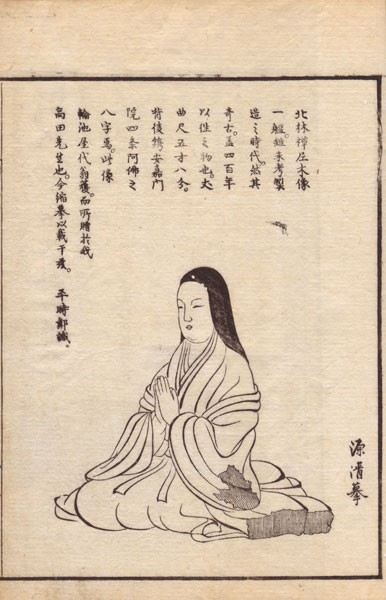 北林禅尼木像
一軀雖未考製
造之時代然其
奇古。盖四百年
以往之物也。丈
曲尺五寸八分。
背後鐫安嘉門
院四条阿佛之
八字焉。此像
輪池屋代翁獲。而所贈於我
高田先生也。今縮摹以載于茲。 平時鄰識。
源清摹